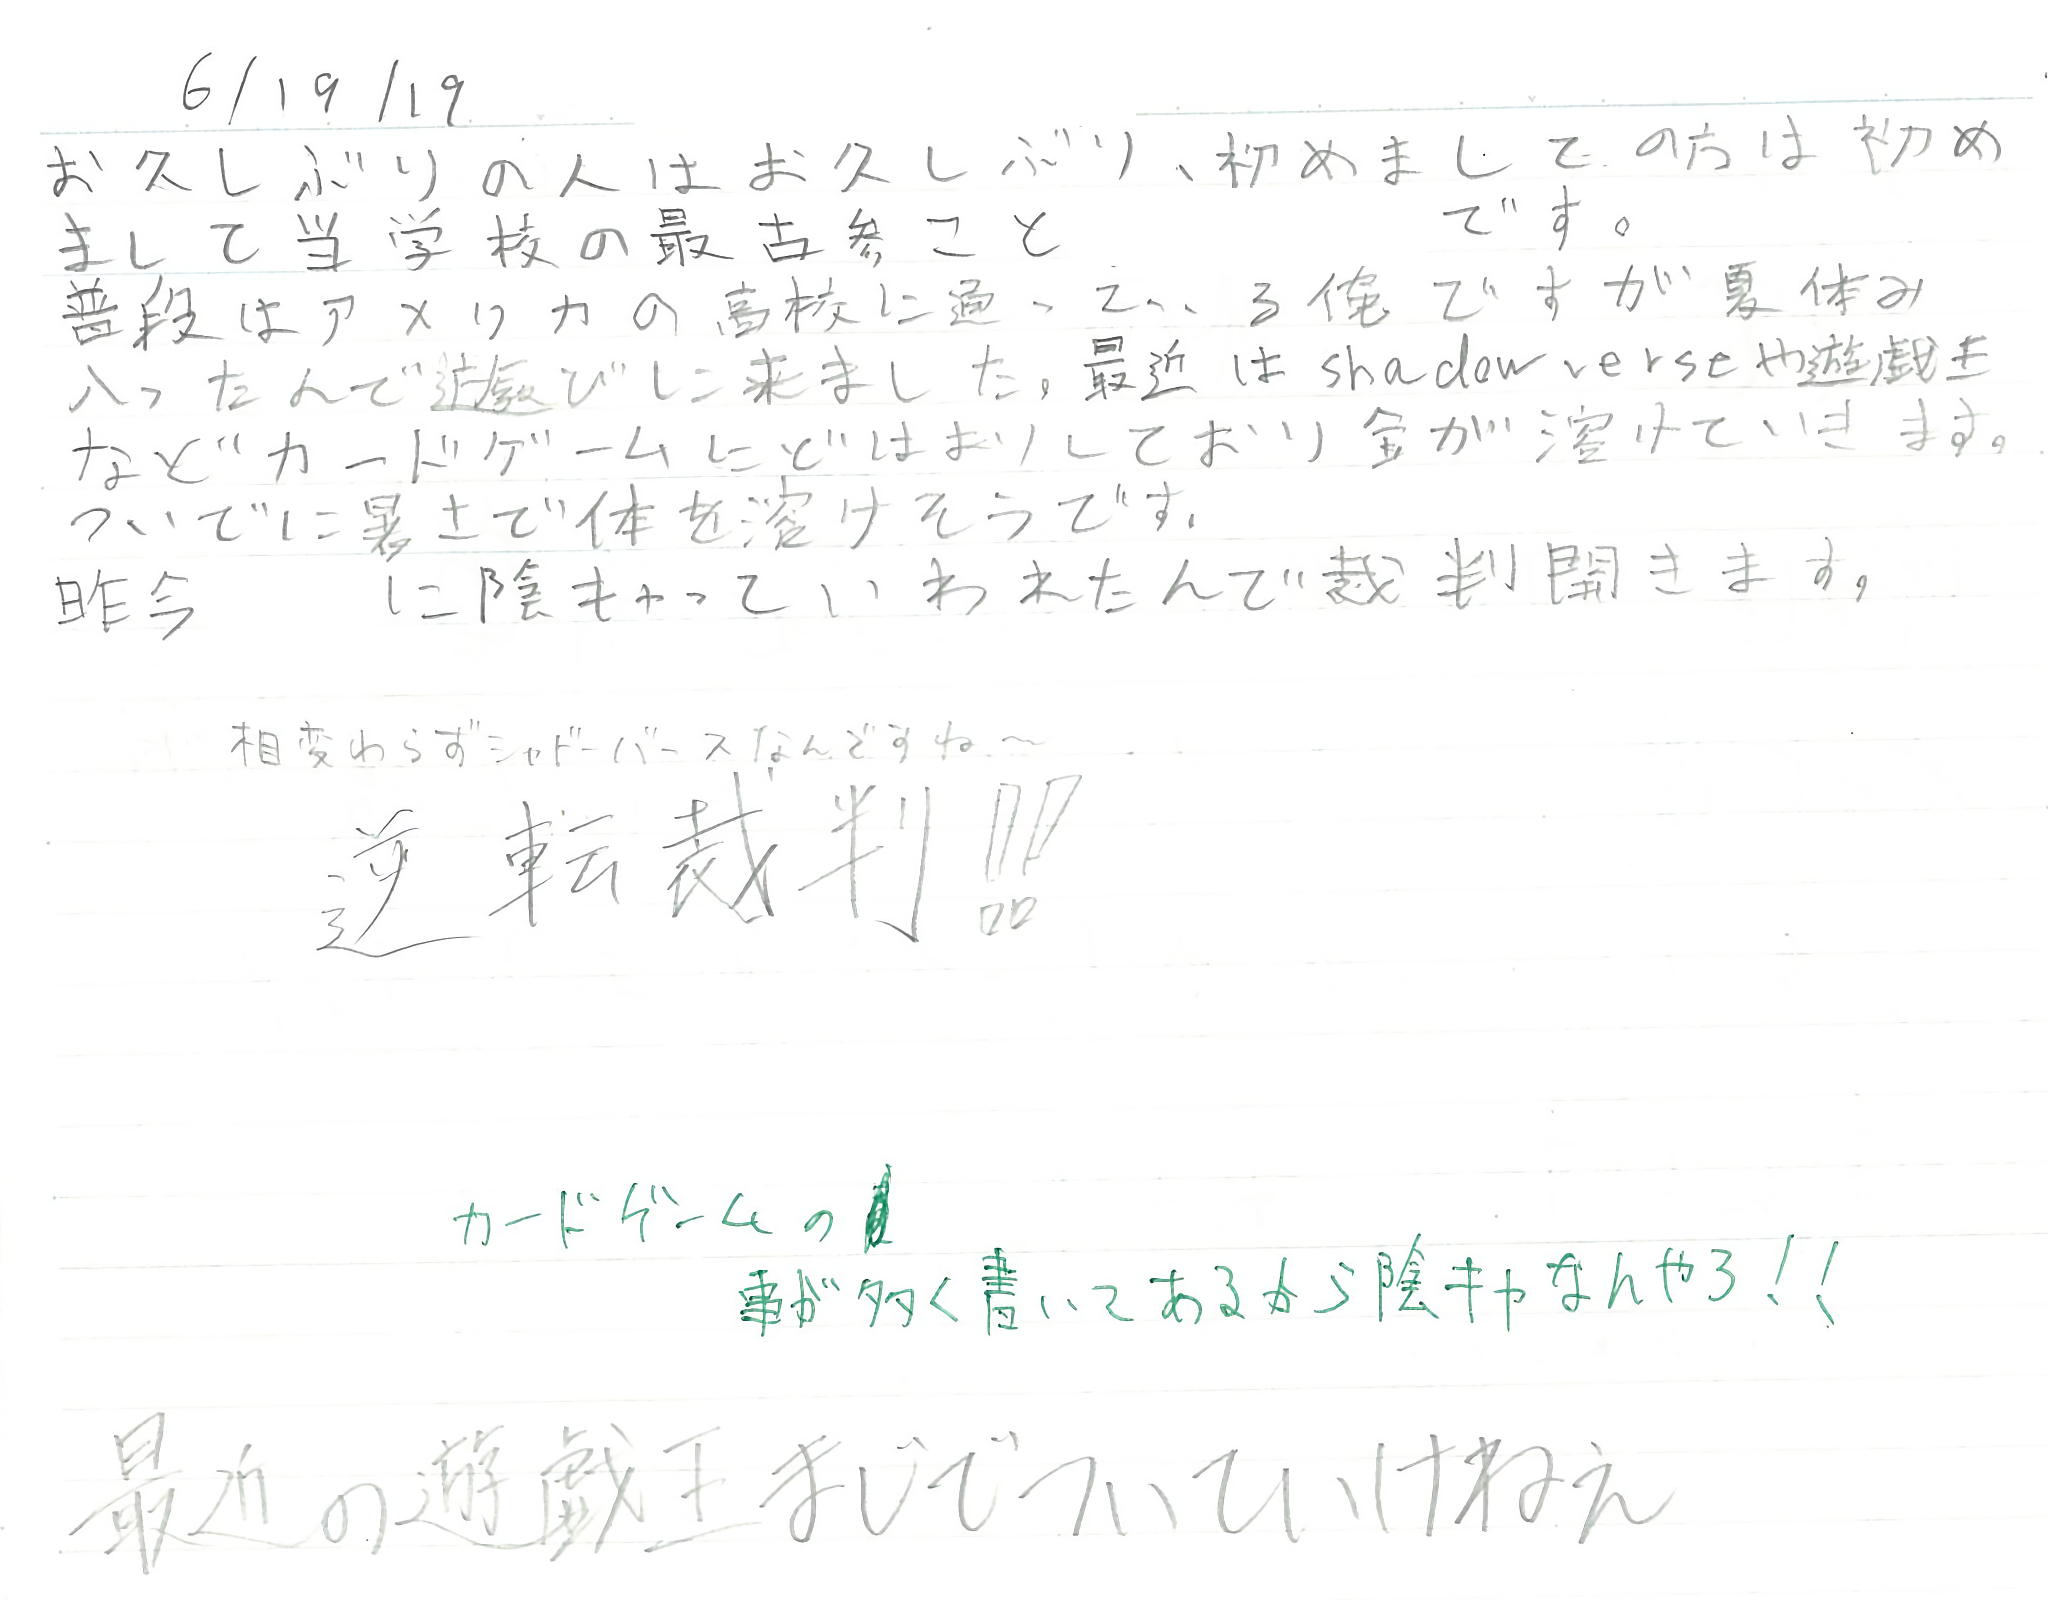 6/19/19
お久しぶりの人はお久しぶり、初めましての方は初め
まして当学校の最古参こと です。
普段はアメリカの高校に通っている俺ですが夏休み
入ったんで遊びに来ました。最近はshadowverseや遊戯王
などカードゲームにどはまりしており金が溶けていきます。
ついでに暑さで体も溶けそうです。
昨今 に陰キャっていわれたんで裁判開きます。
相変わらずシャドーバースなんですね〜
逆転裁判!!
カードゲームの
事が多く書いてあるから陰キャなんやろ!!
最近の遊戯王まじでついていけねえ